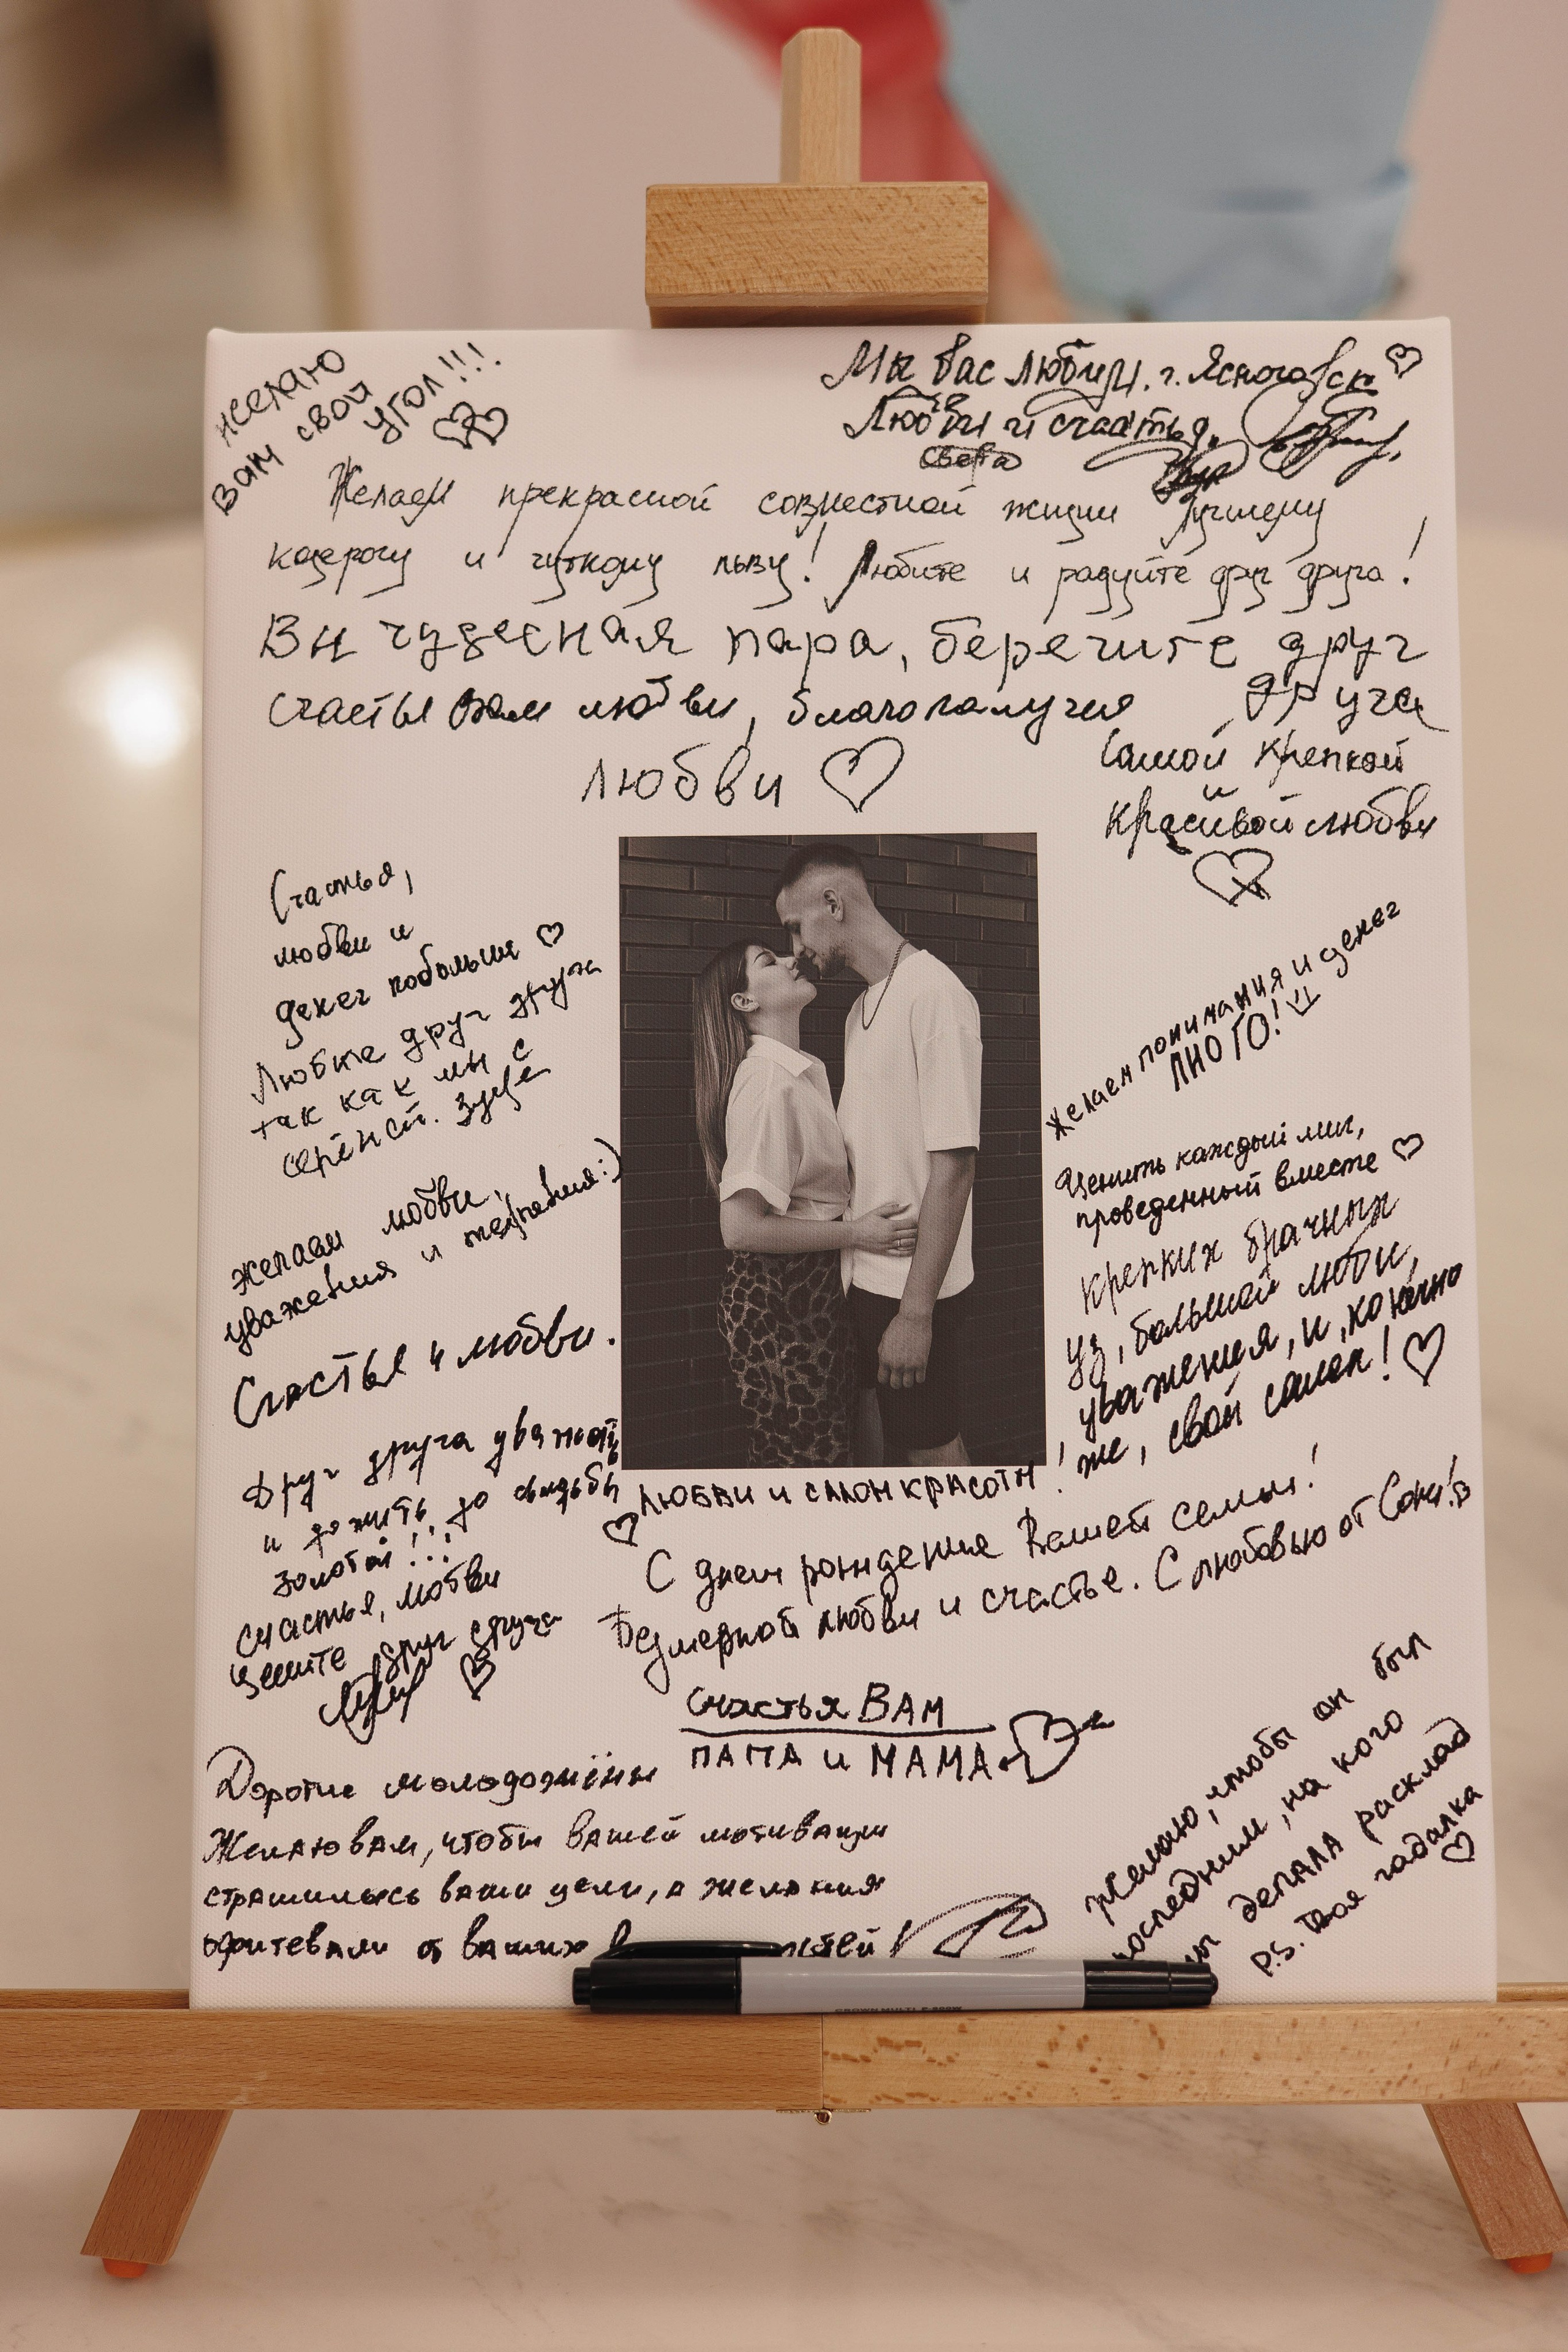 желаю
вам свой
угол!!!
Мы вас любим. г. Ясногорск
Любви и счастья.
Света
Желаем прекрасной совместной жизни лучшему
козерогу и чуткому льву! Любите и радуйте друг друга!
Вы чудесная пара, беречите друг
друга
счастья вам любви, благополучия
любви
Самой крепкой
и
красивой любви
Счастья,
любви и
денег побольше
Любите друг друга
так как мы с
желаем любви,
уважения и терпения:)
Счастья и любви.
Друг друга уважать
и дожить до свадьбы
золотой!...
счастья, любви
Цените друг друга
Желаем понимания и денег
МНОГО!
Ценить каждый миг,
проведенный вместе
Крепких брачных
уз, большой любви,
уважения, и, конечно
же, свой салон!
любви и салон красоты!
С днем рождения Вашей семьи!
Безмерной любви и счастье. С любовью от Сони!
счастья ВАМ
ПАПА и МАМА
Дорогие молодожёны
Желаю вам, чтобы вашей мотивации
страшились ваши цели, а желания
от ваших
Желаю, чтобы он был
последним, на кого
ты делала расклад
P.S. Твоя гадалка